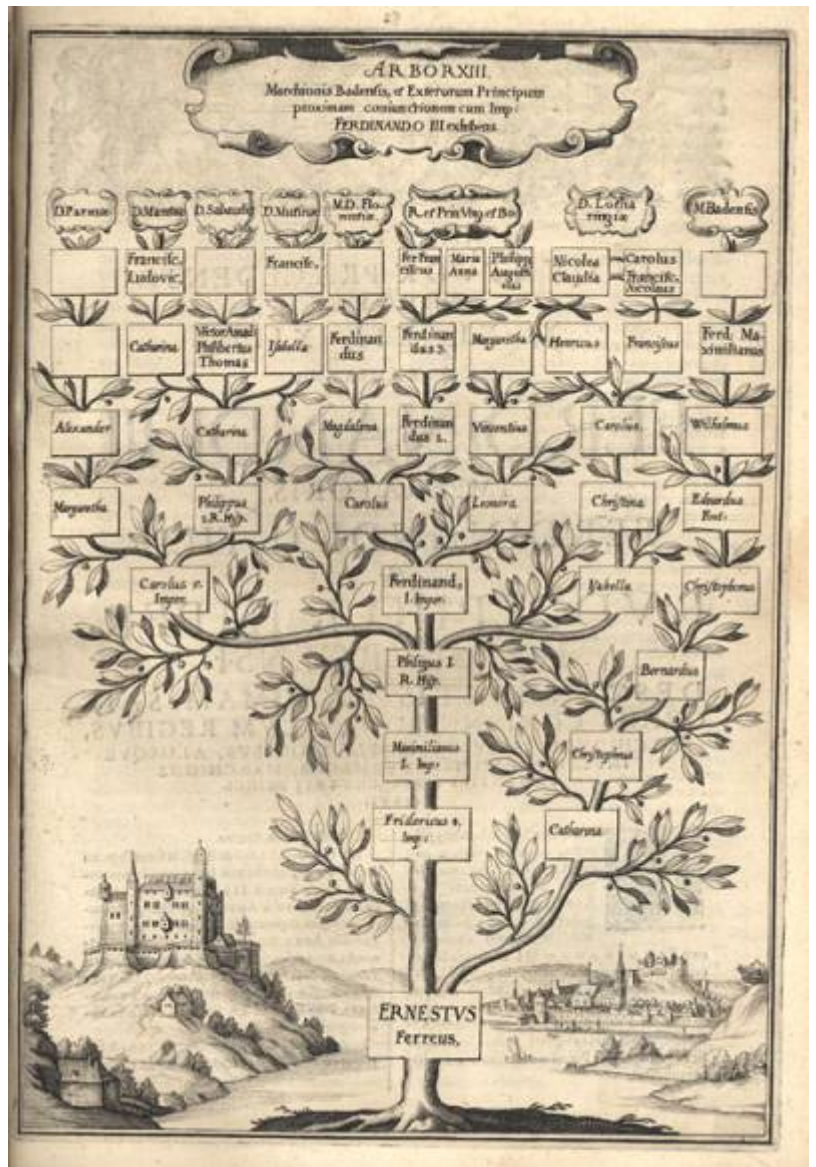 ARBOR XIII.
Marchionis Badensis, et Exterorum Principum
proximam coniunctionem cum Imp:
FERDINANDO III exhibens
D. Parmæ
D. Mantuæ
D. Sabaudiæ
D. Mutinæ
M. D. Florentiæ
R. et Prin. Vng. et Bo.
D. Lotharingiæ
M. Badensis
Francisc.
Ludovic.
Francisc.
Fer Franciscus
Maria
Anna
Philipp
August
Nicolea
Claudia
Carolus
Francisc.
Nicolaus
Catharina
Victor Amad.
Philibertus
Thomas
Isabella
Ferdinandus
Ferdinandus 3.
Margaretha
Henricus
Franciscus
Ferd. Maximilianus
Alexander
Catharina
Magdalena
Ferdinandus 2.
Vincentius
Carolus.
Wilhelmus
Margaretha
Philippus
2. R. Hisp.
Carolus
Leonora
Christina
Eduardus
Fort.
Carolus 5.
Imper.
Ferdinand,
I. Imper.
Ysabella
Christophorus
Philipus I.
R. Hisp.
Bernardus
Maximilianus
I. Imp:
Christophorus
Fridericus 4.
Imp:
Catharina
ERNESTVS
Ferreus,